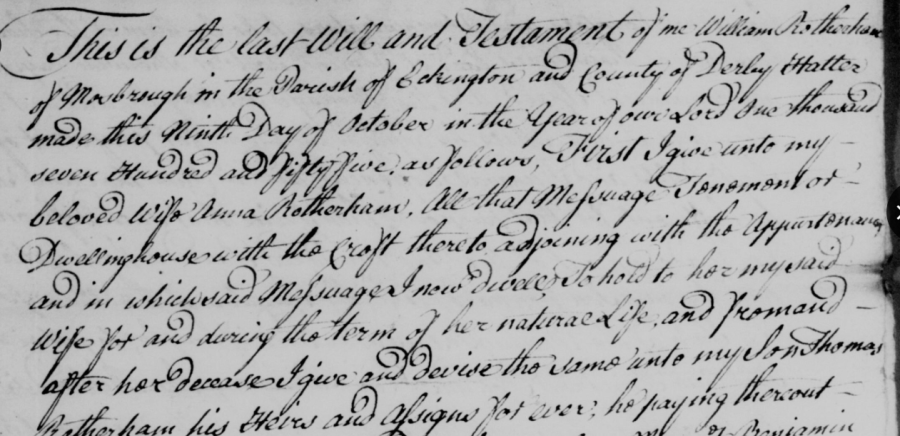 This is the last Will and Testament of me William Rotherham
of Mosbrough in the Parish of Eckington and County of Derby Hatter
made this Ninth Day of October in the Year of our Lord One thousand
seven Hundred and fifty five, as follows, First I give unto my
beloved Wife Anna Rotherham, All that Meſsuage Tenement or
Dwellinghouse with the Croft thereto adjoining with the Appurtenances
and in which said Meſsuage I now dwell, To hold to her my said
Wife for and during the term of her natural Life, and from and
after her decease I give and devise the same unto my Son Thomas
Rotherham his Heirs and Aſsigns for ever, he paying thereout
Benjamin